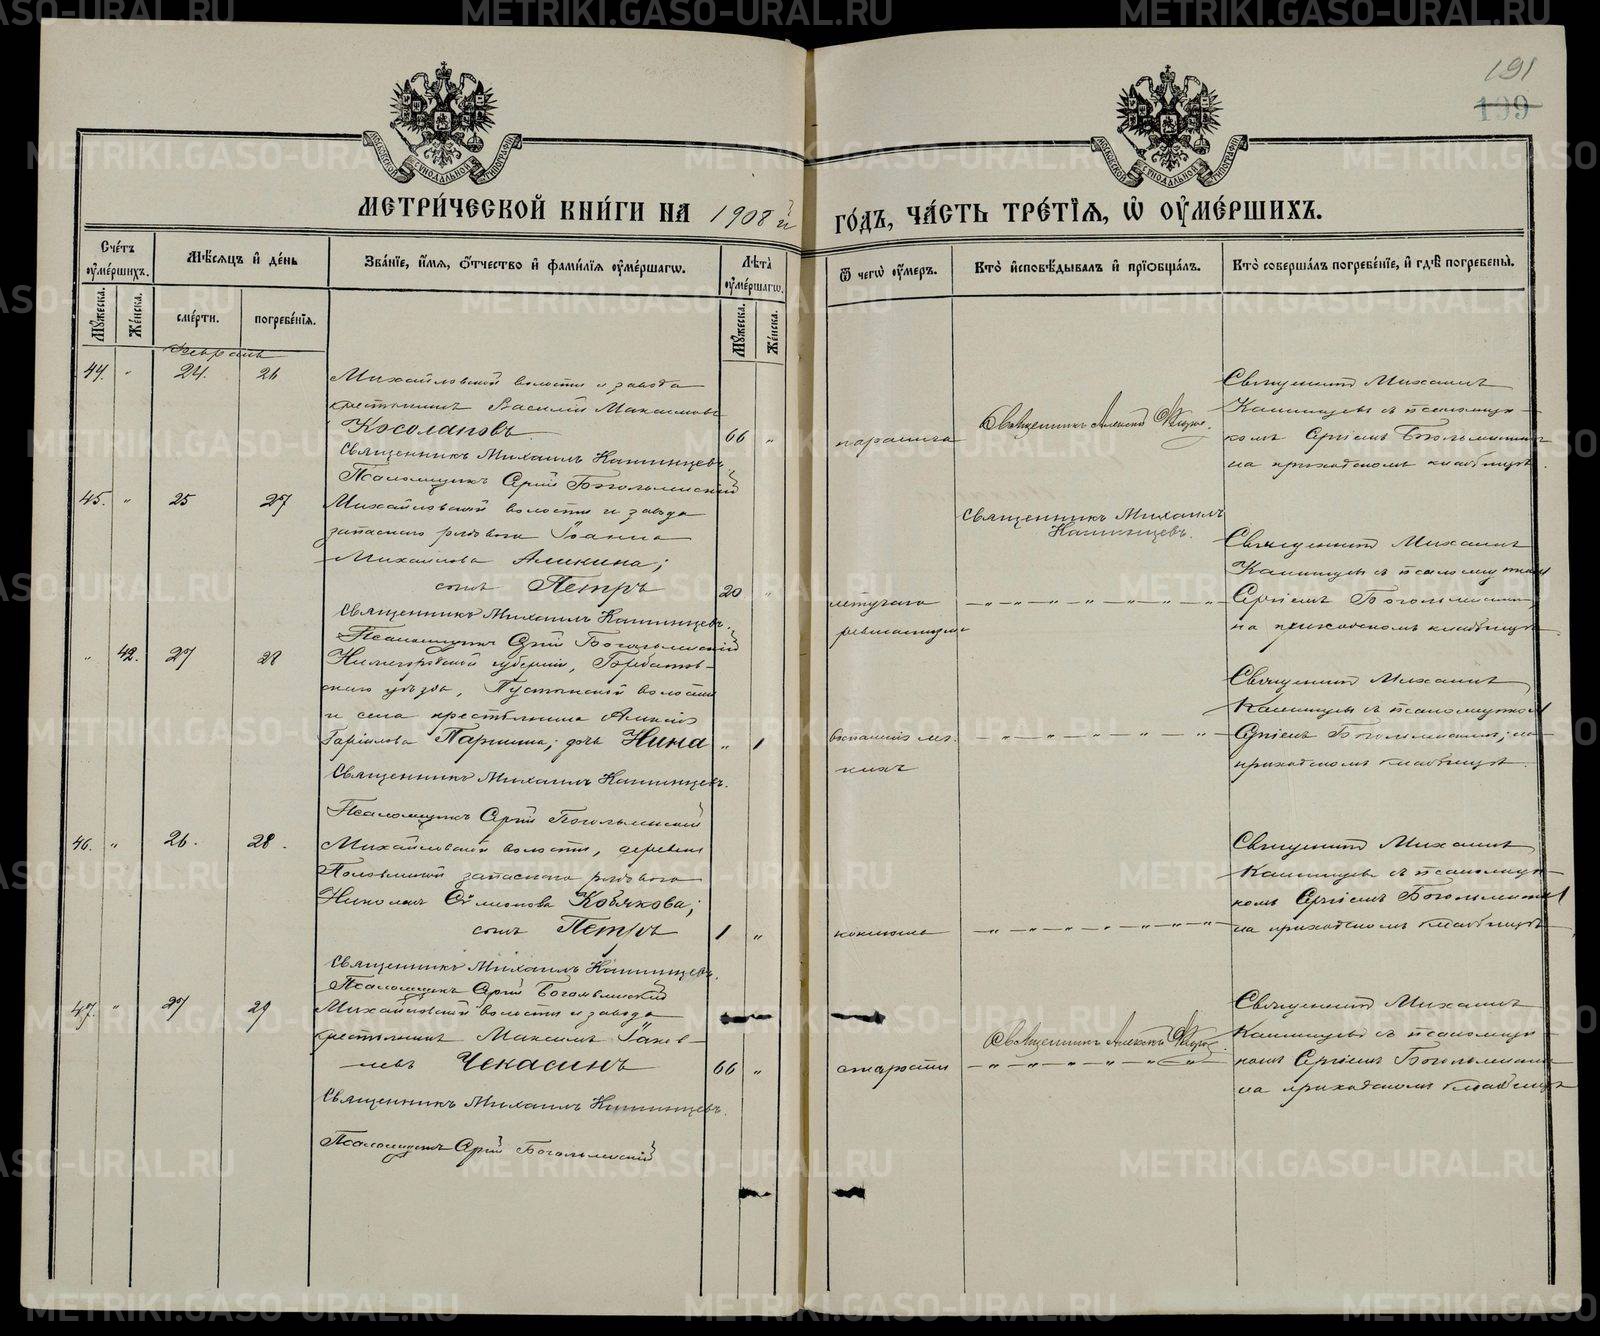 191
199
МОСКОВСКОЙ СѴНОДАЛЬНОЙ ТИПОГРАФІИ
МОСКОВСКОЙ СѴНОДАЛЬНОЙ ТИПОГРАФІИ
МЕТРИ́ЧЕСКОЙ КНИ́ГИ НА 1908 й ГО́ДЪ, ЧА́СТЬ ТРЕ́ТІѦ, Ѡ҆ ОУ҆МЕ́РШИХЪ.
Сче́тъ оу҆ме́ршихъ.
Мꙋ́жеска.
Же́нска.
Мѣ́сѧцъ и҆ де́нь
сме́рти.
погребе́нїѧ.
Зва́нїе, и҆́мѧ, ѻ҆́тчество и҆ фами́лїѧ оу҆ме́ршагѡ.
Лѣ́та оу҆ме́ршагѡ.
Мꙋ́жеска.
Же́нска.
Ѿ чегѡ̀ оу҆́меръ.
Кто̀ и҆сповѣ́дывалъ и҆ прїѡбща́лъ.
Кто̀ соверша́лъ погребе́нїе, и҆ гдѣ̀ погребены̀.
Февраль
44. " 24. 26
Михайловской волости и завода
крестьянинъ Василій Максимовъ
Косолаповъ 66 "
Священникъ Михаилъ Кашинцевъ.
Псаломщикъ Сергій Богольменскій
паралича
Священникъ Алексій
Священникъ Михаилъ
Кашинцевъ съ псаломщи-
комъ Сергіемъ
на приходскомъ кладбищѣ.
45. " 25 27
Михайловской волости и завода
запаснаго рядового Іоанна
Михайлова Аликина;
сынъ Петръ 20 "
Священникъ Михаилъ Кашинцевъ.
Псаломщикъ Сергій Богольменскій
летучаго
ревматизма
Священникъ Михаилъ
Кашинцевъ.
Священникъ Михаилъ
Кашинцевъ съ псаломщикомъ
Сергіемъ
на приходскомъ кладбищѣ.
" 42. 27 29
Нижегородской губерніи, Горбатов-
скаго уѣзда, волости
и села крестьянина Алексія
Гаріилова Паршина; дочь Нина " 1
Священникъ Михаилъ Кашинцевъ.
Псаломщикъ Сергій Богольменскій
воспаленія лег-
кихъ
Священникъ Михаилъ
Кашинцевъ съ псаломщикомъ
Сергіемъ
приходскомъ кладбищѣ.
46. " 26. 28.
Михайловской волости, деревни
запаснаго рядового
Николая Симеонова Кобякова;
сынъ Петръ 1 "
Священникъ Михаилъ Кашинцевъ.
Псаломщикъ Сергій Богольменскій
коклюша
Священникъ Михаилъ
Кашинцевъ съ псаломщи-
комъ Сергіемъ
на приходскомъ кладбищѣ.
47. " 27 29
Михайловской волости и завода
крестьянинъ Максимъ Іаков-
левъ Чекасинъ 66 "
Священникъ Михаилъ Кашинцевъ.
Псаломщикъ Сергій Богольменскій
старости
Священникъ Алексій
Священникъ Михаилъ
Кашинцевъ съ псаломщи-
комъ Сергіемъ
на приходскомъ кладбищѣ
METRIKI.GASO-URAL.RU